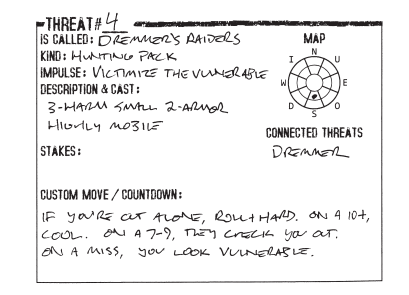 THREAT# 4
IS CALLED: DREMMER'S RAIDERS
KIND: HUNTING PACK
IMPULSE: VICTIMIZE THE VULNERABLE
DESCRIPTION & CAST:
3-HARM SMALL 2-ARMOR
HIGHLY MOBILE
STAKES:
MAP
N
I U
W E
D O
S
CONNECTED THREATS
DREMMER
CUSTOM MOVE / COUNTDOWN:
IF YOU'RE OUT ALONE, ROLL+HARD. ON A 10+,
COOL. ON A 7-9, THEY CHECK YOU OUT.
ON A MISS, YOU LOOK VULNERABLE.